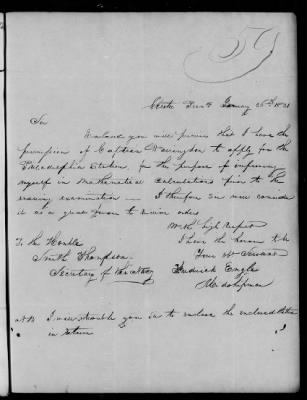 59
Sir
Enclosed you will perceive that I have the
permission of Captain to apply for the
Philadelphia Station, for the purpose of improving
myself in Mathematical Calculations prior to the
ensuing examination — I therefore Sir now consider
it as a great favor to receive orders
With high Respect
I have the honor to be
Your Obt Servant
To the Honble
Smith Thompson
Secretary of the Navy
Frederick Engle
Midshipman
NB I must trouble you Sir to enclose the enclosed
in return